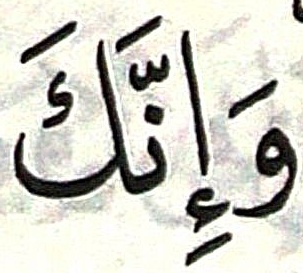 وَإِنَّكَ